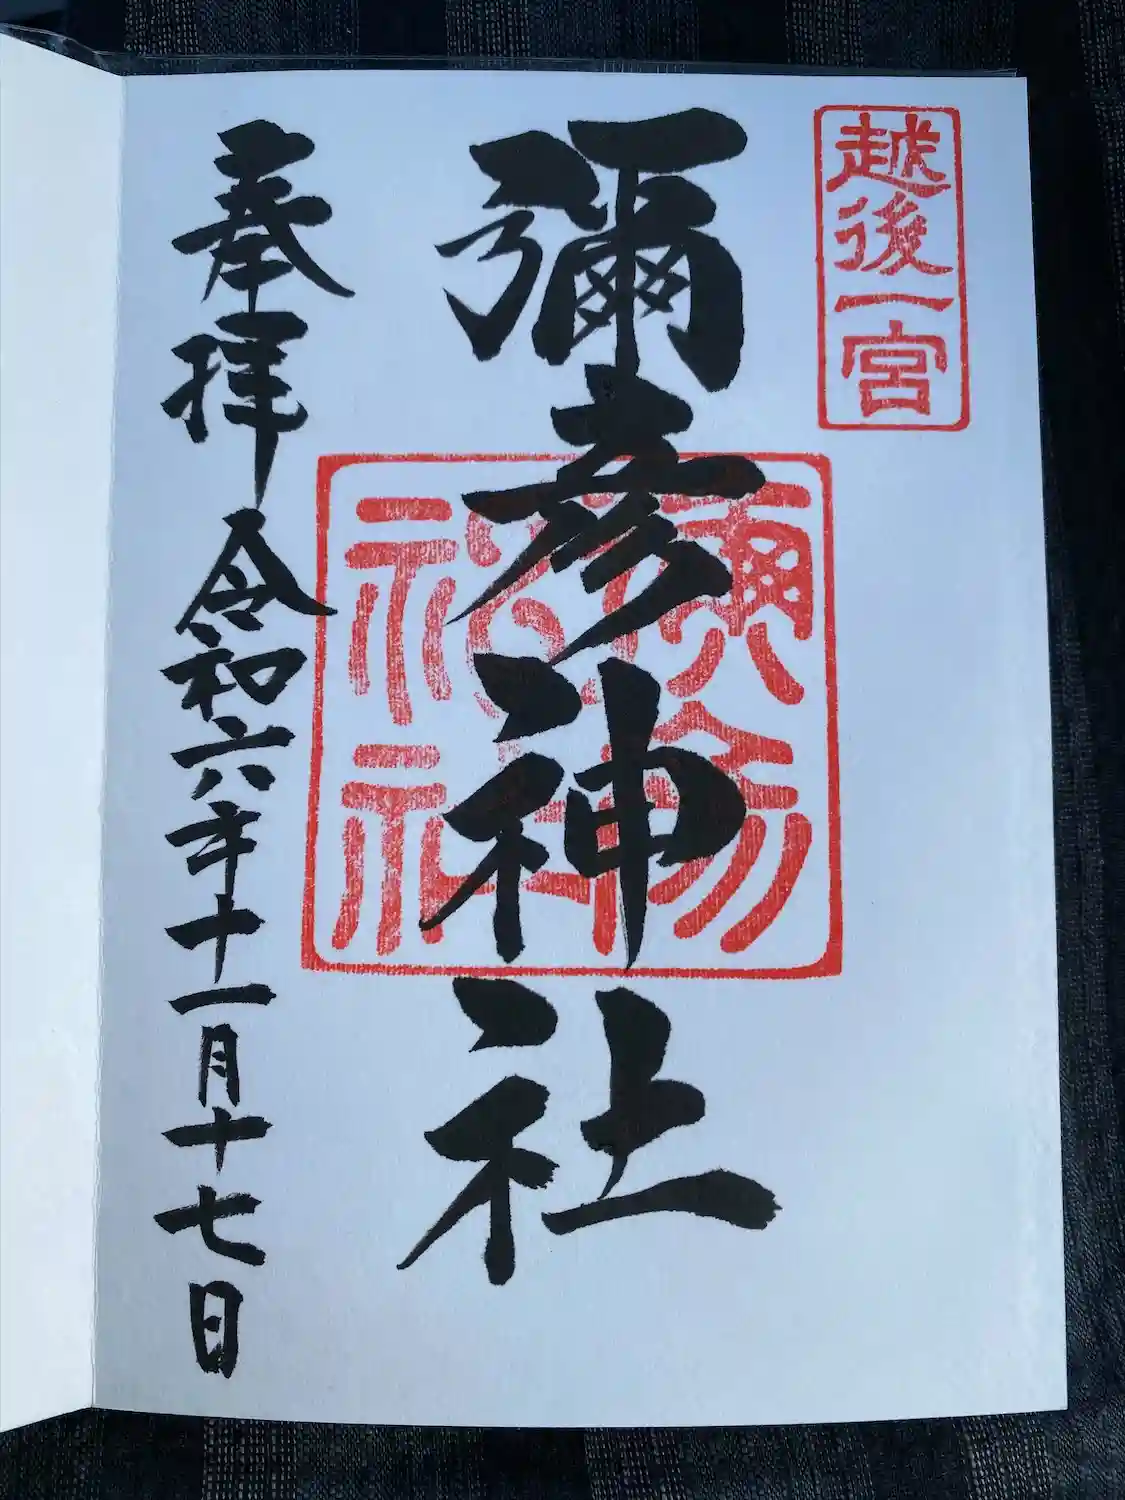 越後一宮
彌彦神社
彌彦神社
奉拝 令和六年十一月十七日